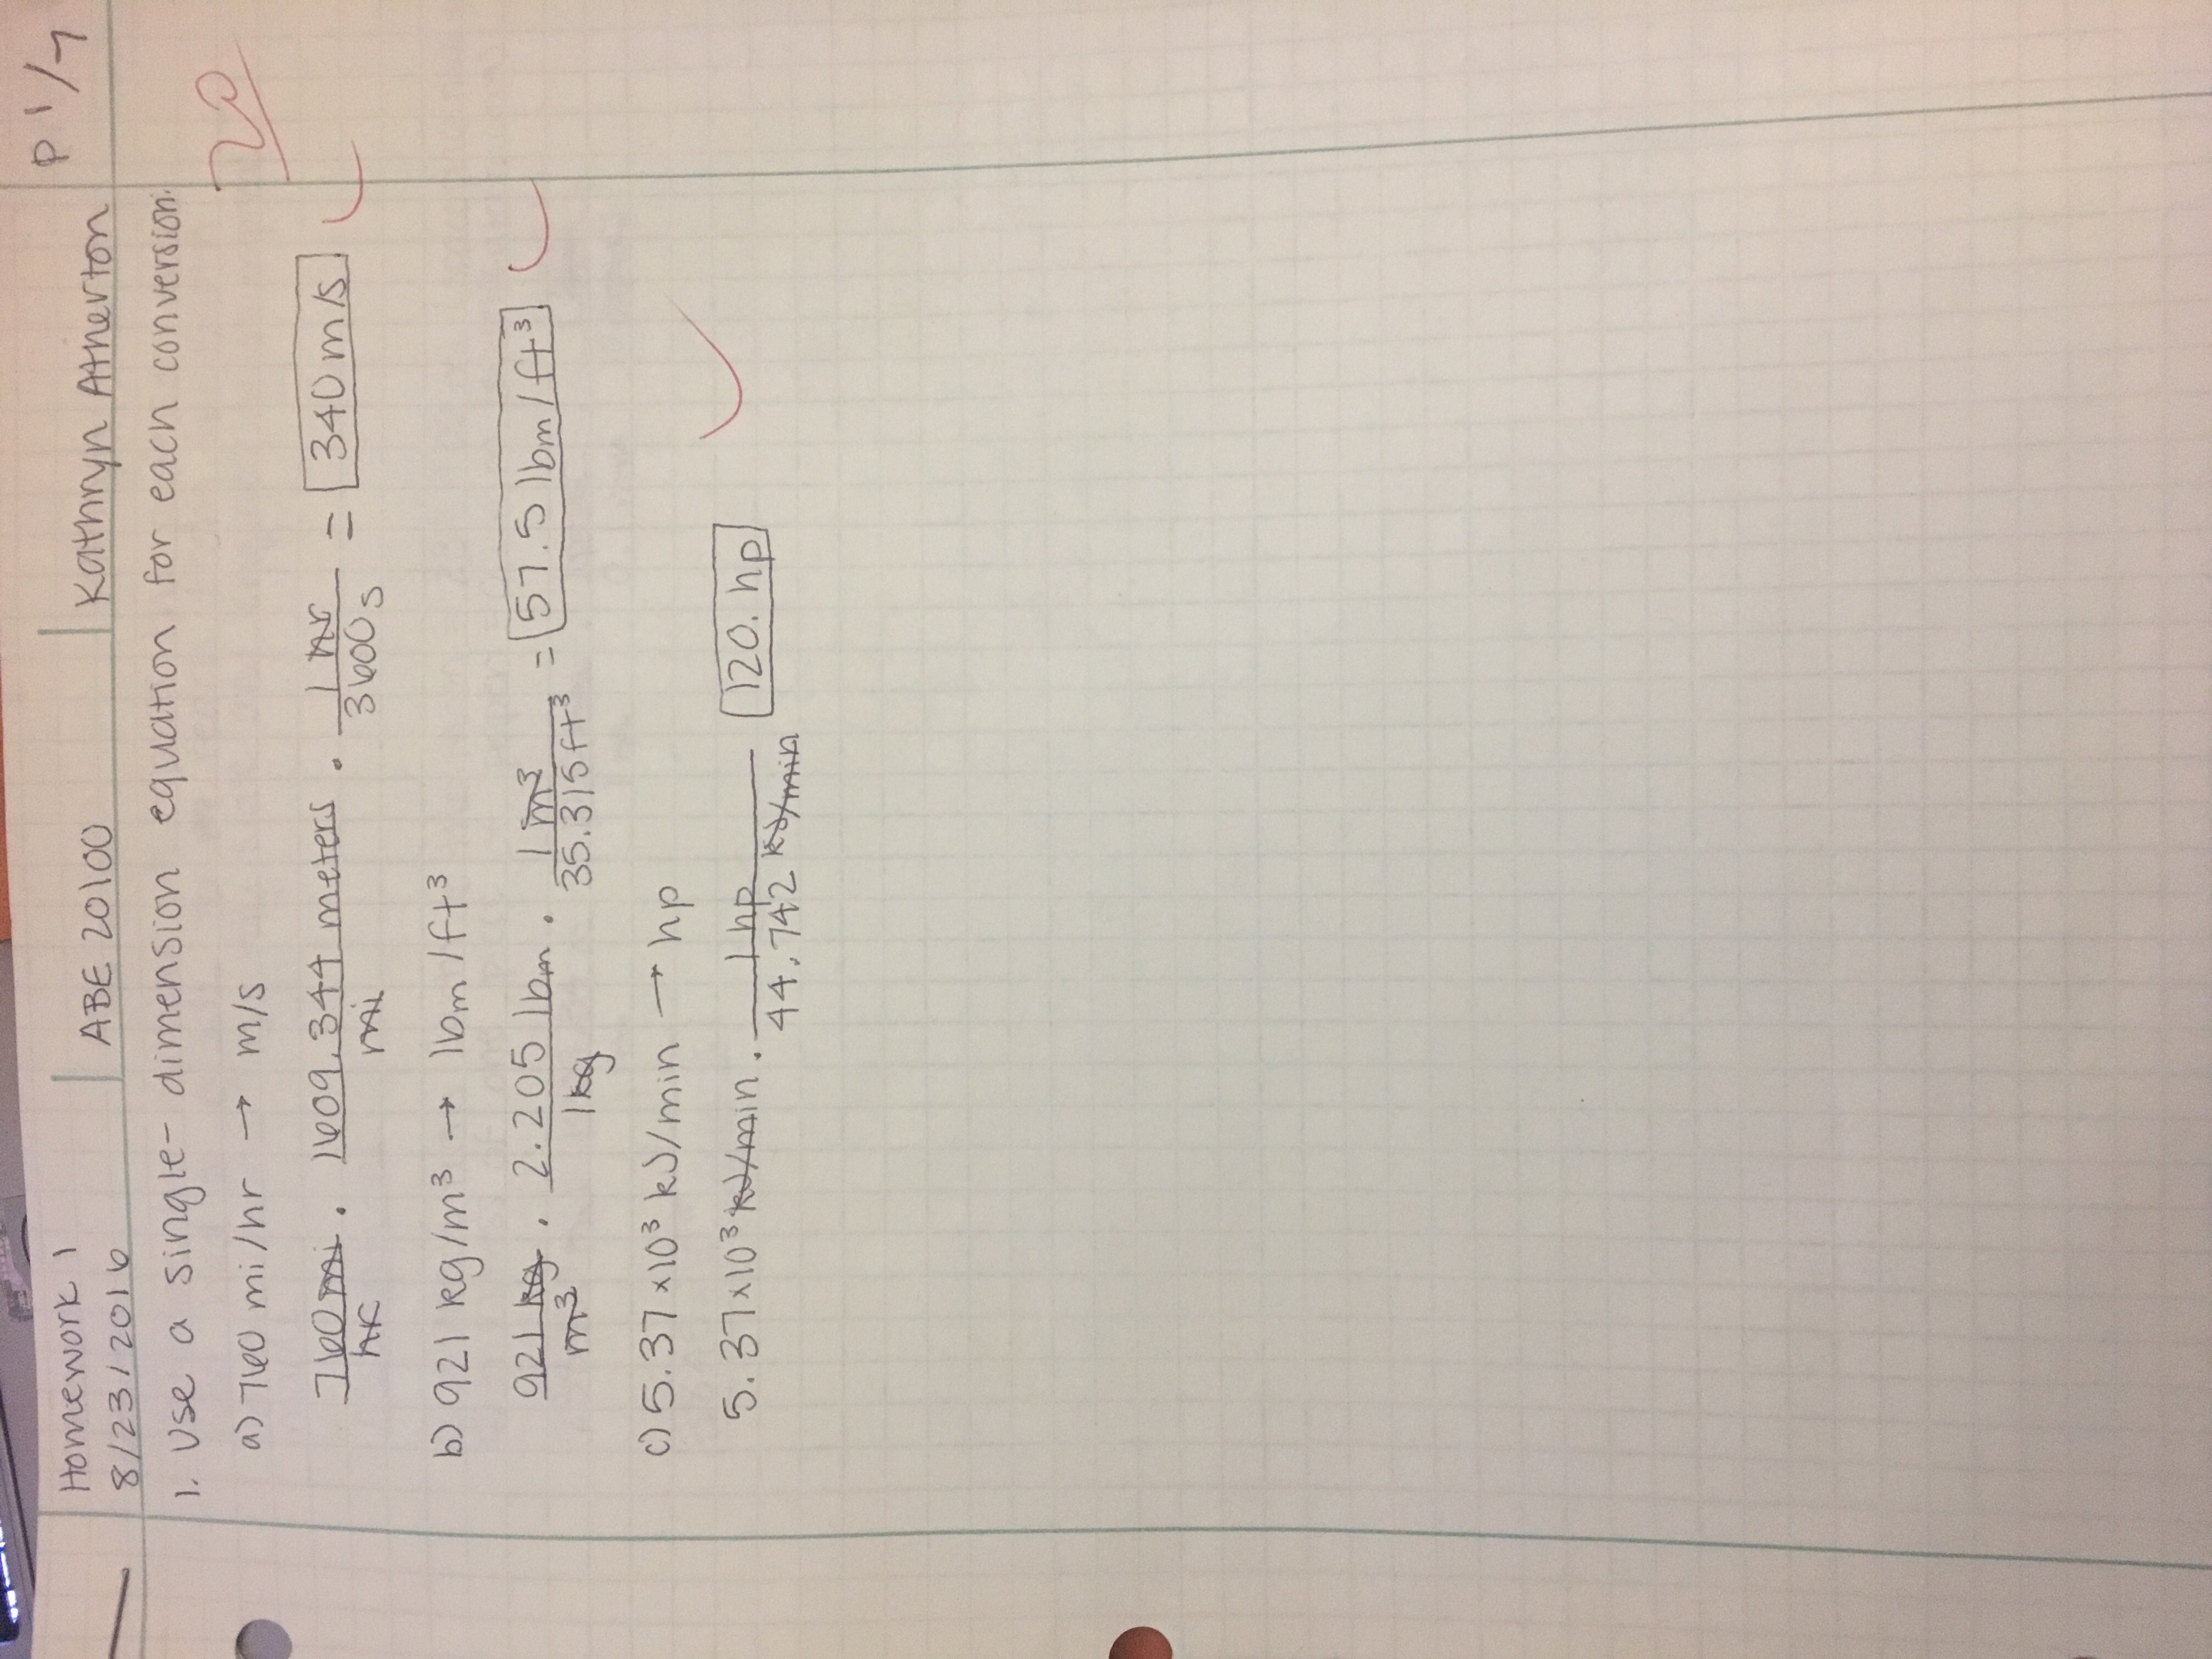 P 1/7
Homework 1
8/23/2016
ABE 20100
Kathryn Atherton
1. Use a single-dimension equation for each conversion.
20
a) 760 mi/hr → m/s
760 mi/hr · 1609.344 meters/mi · 1 hr/3600 s = 340 m/s
b) 921 kg/m³ → lbm/ft³
921 kg/m³ · 2.205 lbm/1 kg · 1 m³/35.315 ft³ = 57.5 lbm/ft³
c) 5.37 ×10³ kJ/min → hp
5.37×10³ kJ/min · 1 hp/44.742 kJ/min 120. hp